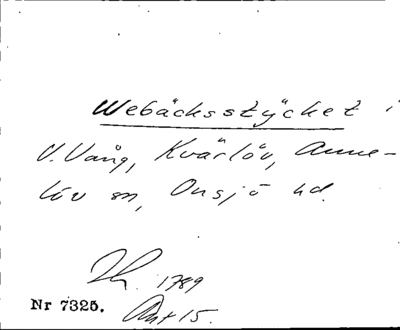 Webäcksstÿcket i
V. Vång, Kvärlöv, Anne-
löv sn, Onsjö hd.
1789
Nr 7325. Akt 15.